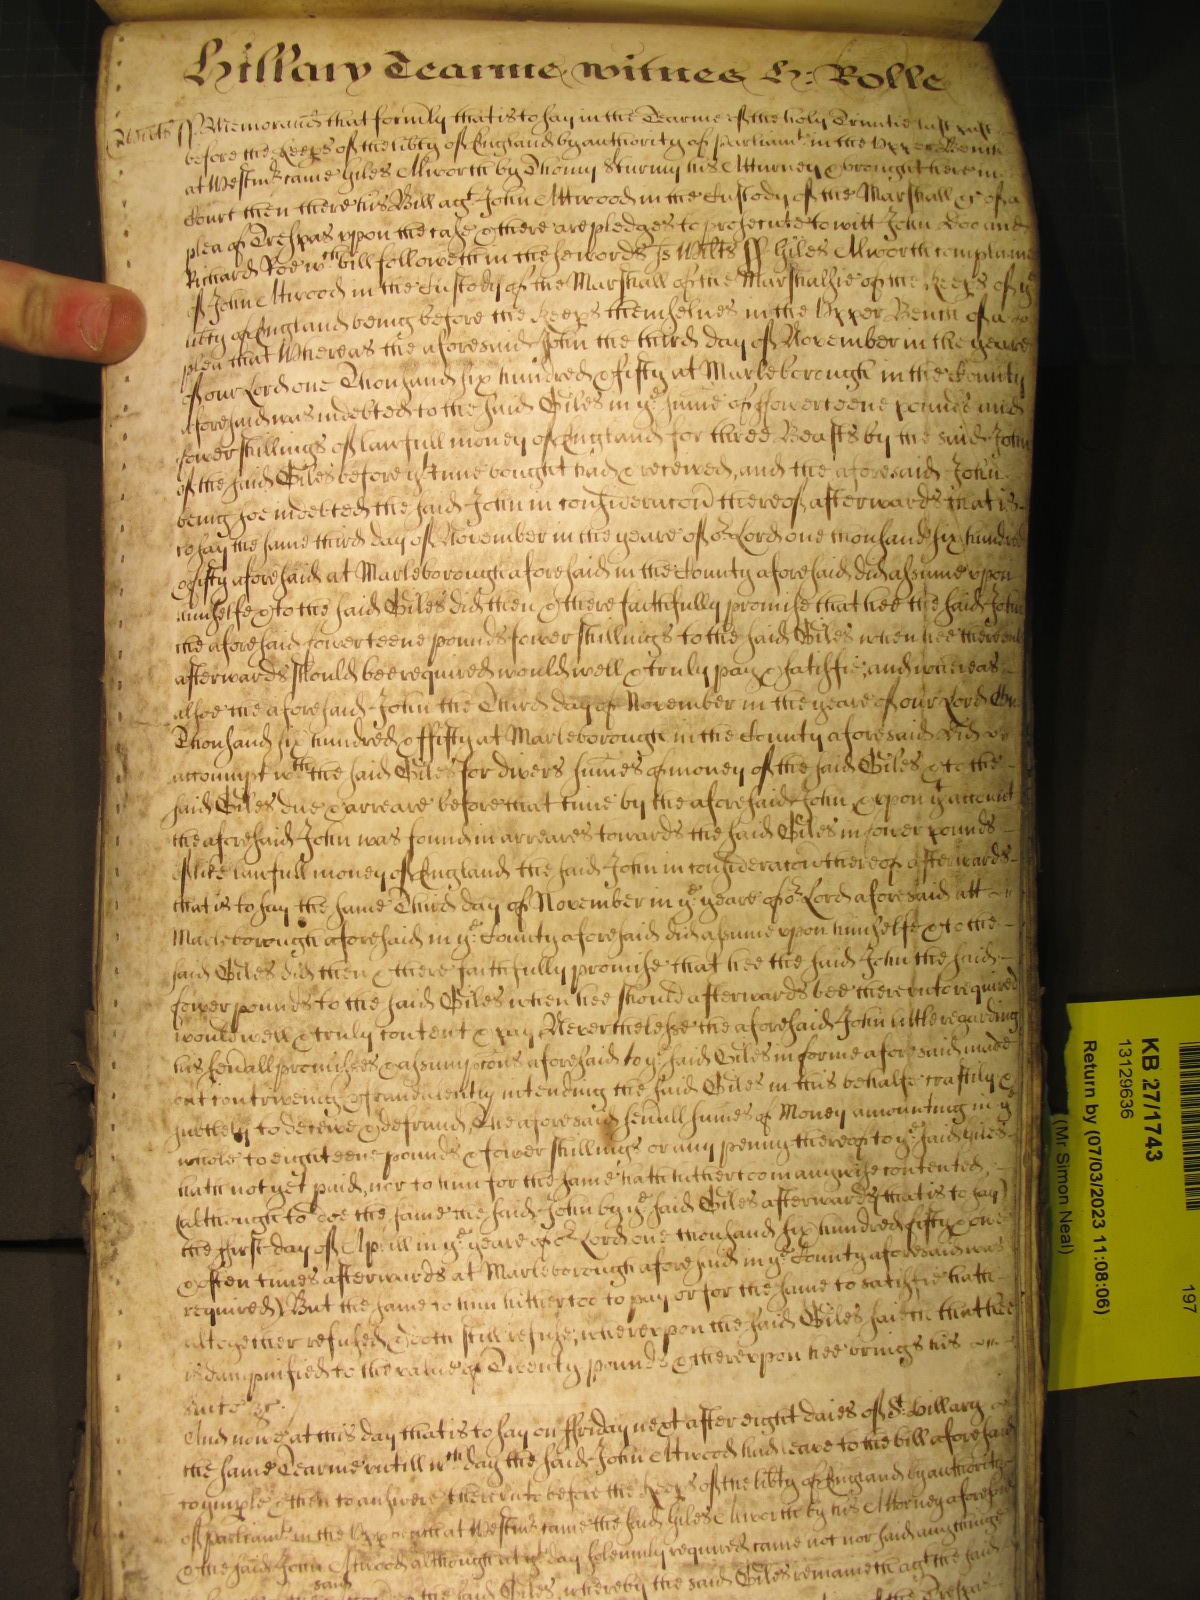 Hillary Tearme witnes H: Rolle
Wiltes ss Memorand that formly that is to say in the Tearme of the holy Trinitie last past
before the Keeps of the libty of England by authority of Parliamt in the Upper Bench
at Westmr came Giles Alworth by Thomas Sturmy his Atturney & brought here in
Court then there his Bill agt John Attwood in the Custody of the Marshall &c of a
plea of Trespas upon the case & there are pledges to prosecute to witt John Doo and
Richard Roe wch bill followeth in these words ss Wilts ss Giles Alworth complaines
of John Atwood in the Custody of the Marshall of the Marshalsie of the Keeps of ye
libty of England being before the Keeps themselves in the Upper Bench of a
plea that Whereas the aforesaid John the third day of November in the yeare
of our Lord one Thousand six hundred & fifty at Marleborough in the County
aforesaid was indebted to the said Giles in ye summe of fowerteene pounds and
fower shillings of lawfull money of England for three Beasts by the said John
of the said Giles before yt time bought had & received, and the aforesaid John
being soe indebted the said John in consideracon thereof afterwards that is
to say the same third day of November in the yeare of or Lord one thousand six hundred
& fifty aforesaid at Marleborough aforesaid in the County aforesaid did assume upon
himselfe & to the said Giles did then & there faithfully promise that hee the said John
the aforesaid fowerteene pounds fower shillings to the said Giles when hee thereunto
afterwards should bee required would well & truly pay & satisfie, and whereas
alsoe the aforesaid John the Third day of November in the yeare of our Lord One
Thousand six hundred & fifty at Marleborough in the County aforesaid did
accompt wth the said Giles for divers summes of money of the said Giles & to the
said Giles due & arreare before that time by the aforesaid John & upon yt account
the aforesaid John was found in arreares towards the said Giles in fower pounds
of like lawfull money of England the said John in consideracon thereof afterwards
that is to say the same Third day of November in ye yeare of or Lord aforesaid att
Marleborough aforesaid in ye County aforesaid did assume upon himselfe & to the
said Giles did then & there faithfully promise that hee the said John the said
fower pounds to the said Giles when hee should afterwards bee thereunto required
would well & truly content & pay Neverthelesse the aforesaid John little regarding
his sevall promises & assumpcons aforesaid to ye said Giles in forme aforesaid made
but contriveing & fraudulently intending the said Giles in this behalfe craftily &
subtlely to deceive & defraud, the aforesaid sevall summes of Money amounting in ye
whole to eighteene pounds & fower shillings or any penny thereof to ye said Giles
hath not yet paid, nor to him for the same hath hitherto in any wise contented,
(although to doe the same the said John by ye said Giles afterwards that is to say
the first day of Aprill in ye yeare of or Lord one thousand six hundred fifty & one
& often times afterwards at Marleborough aforesaid in ye County aforesaid was
required) But the same to him hitherto to pay or for the same to satisfie hath
altogether refused, & doth still refuse, whereupon the said Giles saieth that hee
is dampnified to the value of Twenty pounds & thereupon hee brings his
suite &c.
And nowe at this day that is to say on ffriday next after eight daies of St Hillary
the same Tearme untill wch day the said John Atwood had leave to the bill aforesaid
to imple & then to answere thereunto before the Keeps of the libty of England by authority
of Parliamt in the Upp Bench at Westmr came the said Giles Alworth by his Attorney aforesaid
& the said John Atwood although at yt day solemnly required came not nor said any thinge
said Giles, whereby the said Giles remaineth agt the said
KB 27/1743
13129636
Return by (07/03/2023 11:08:06)
(Mr Simon Neal)
197